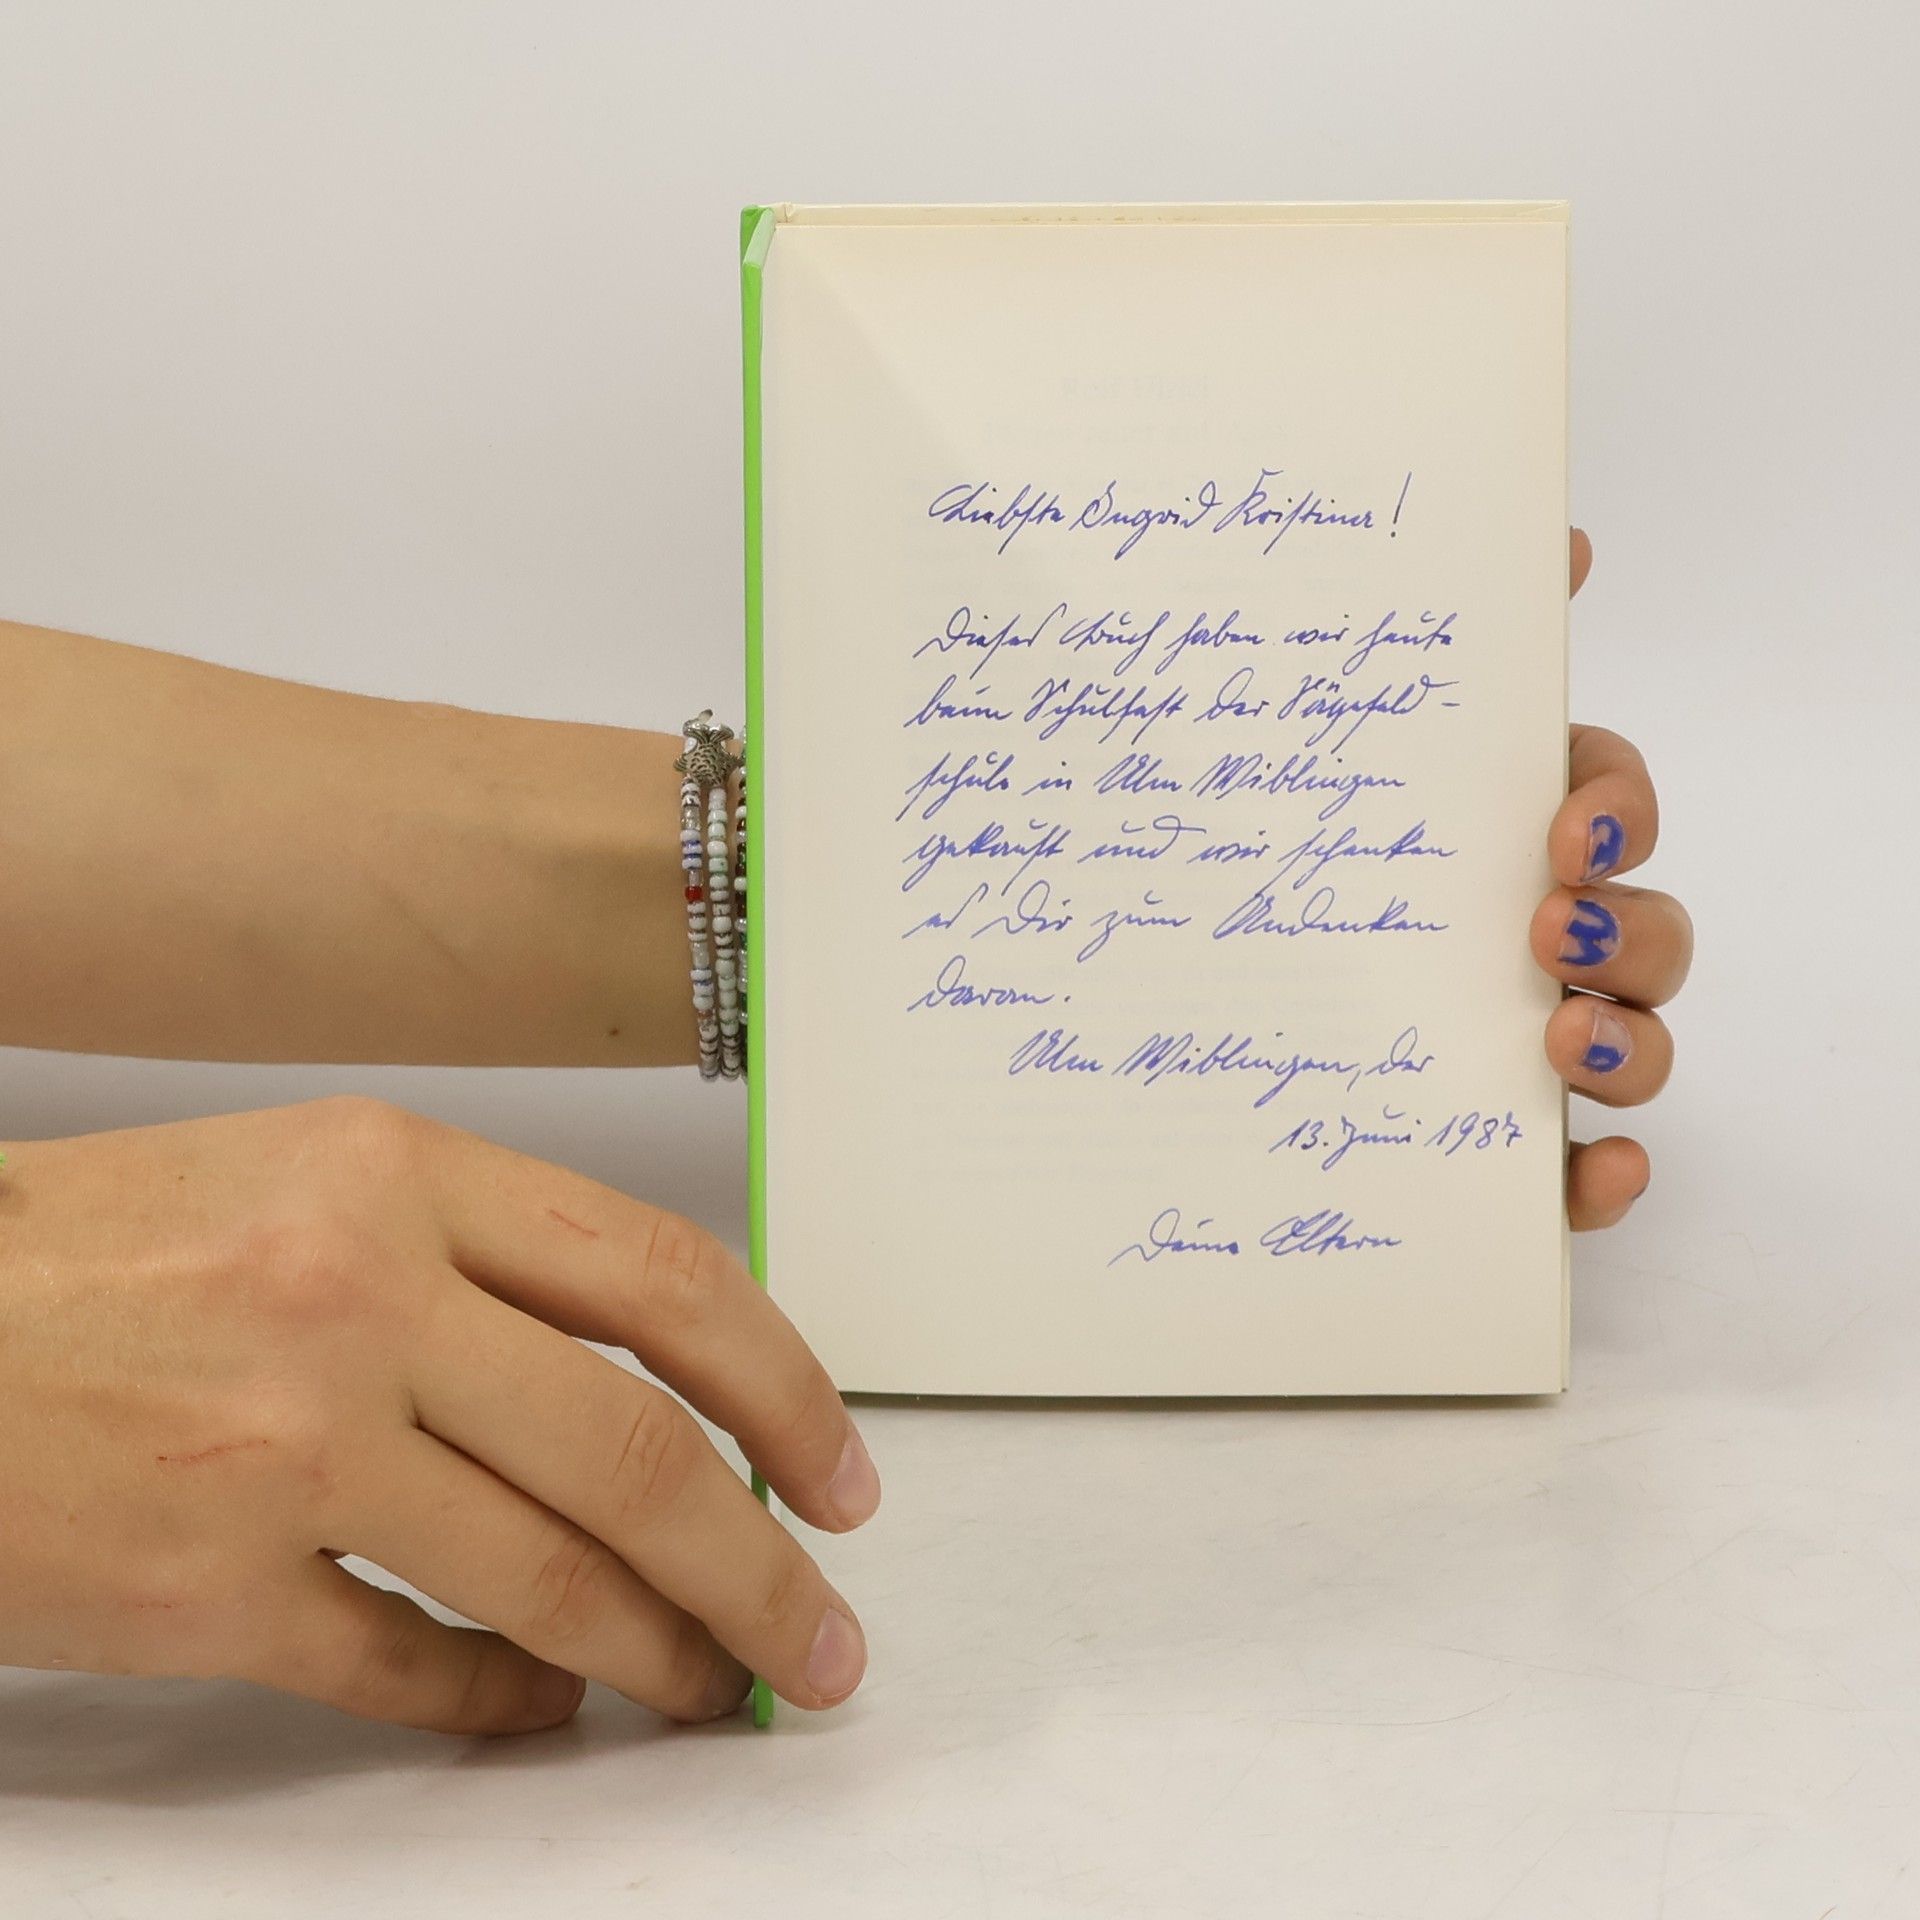 Liebste Ingrid Kristina!
Dieses Buch haben wir heute
beim Schulfest der Sägefeld-
schule in Ulm Wiblingen
gekauft und wir schenken
es Dir zum Andenken
daran.
Ulm Wiblingen, der
13. Juni 1987
Deine Eltern